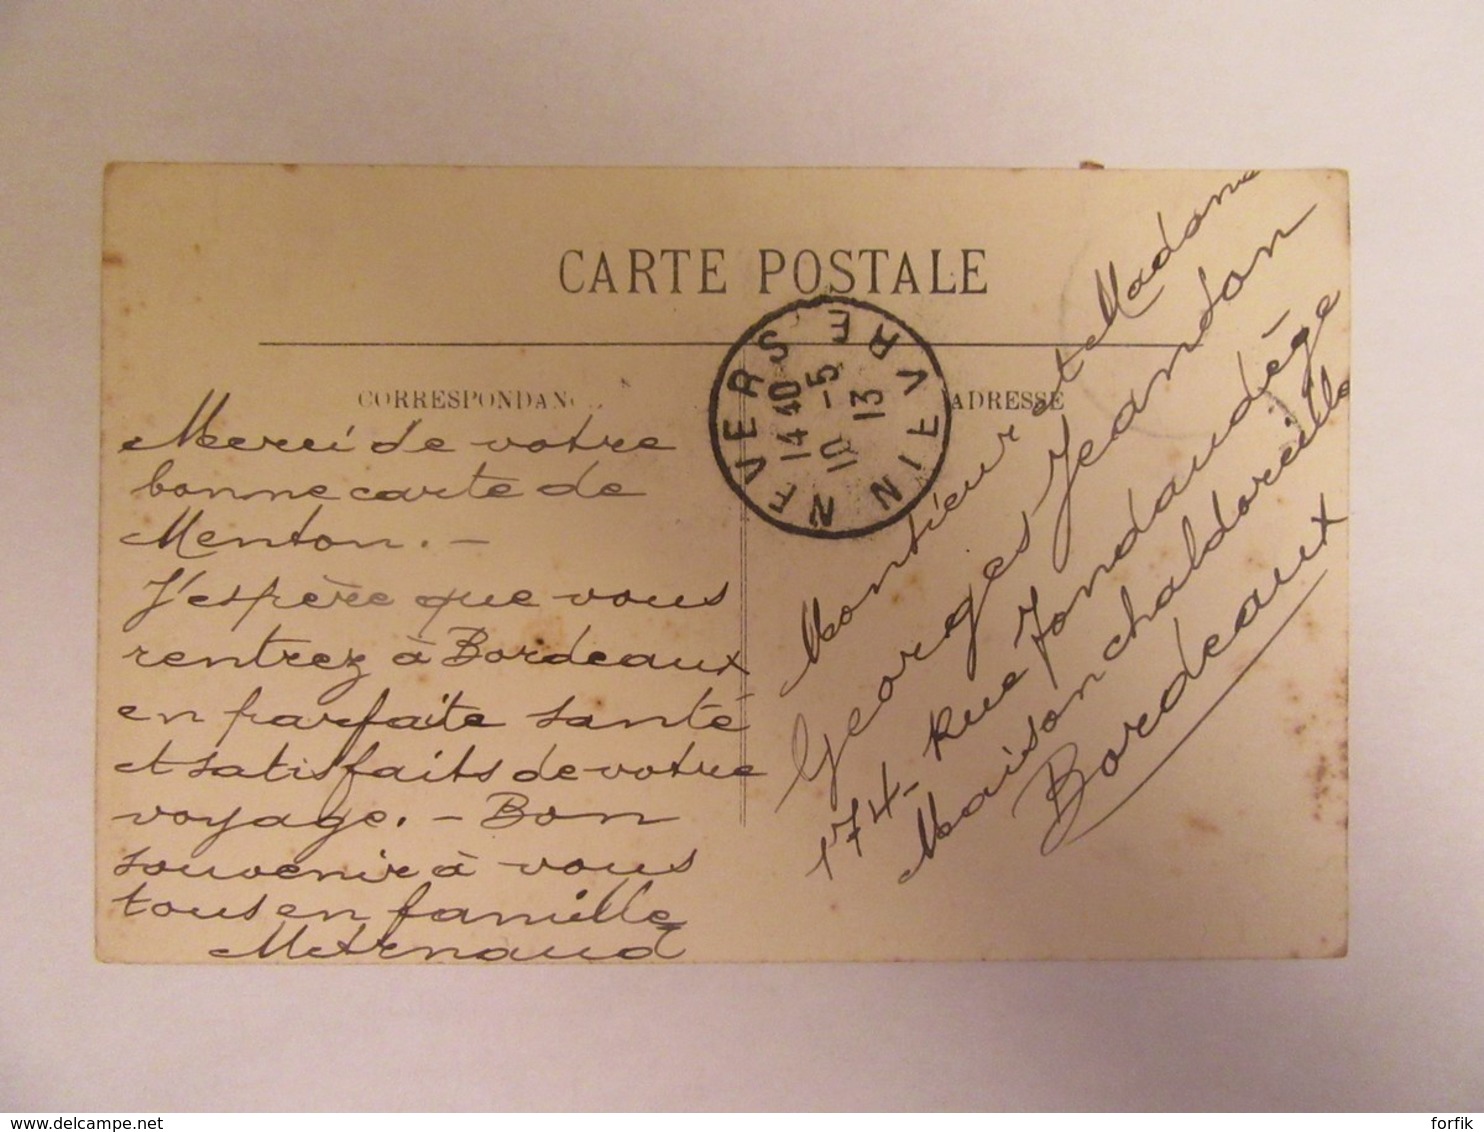 CARTE POSTALE
CORRESPONDAN
ADRESSE
NEVERS
NIEVRE
14 40
10 -5
13
Merci de votre
bonne carte de
Menton. -
J'espère que vous
rentrez à Bordeaux
en parfaite santé
et satisfaits de votre
voyage. - Bon
souvenir à vous
tous en famille
Monsieur et Madame
Georges Jeandon
174 - Rue Fondaudège
Maison
Bordeaux
delcampe.net
forfik